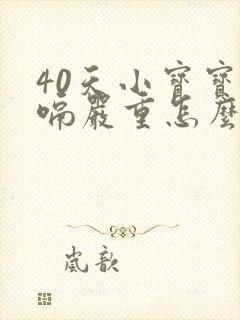 40天小寶寶
嗝嚴重怎麼
嵐歆